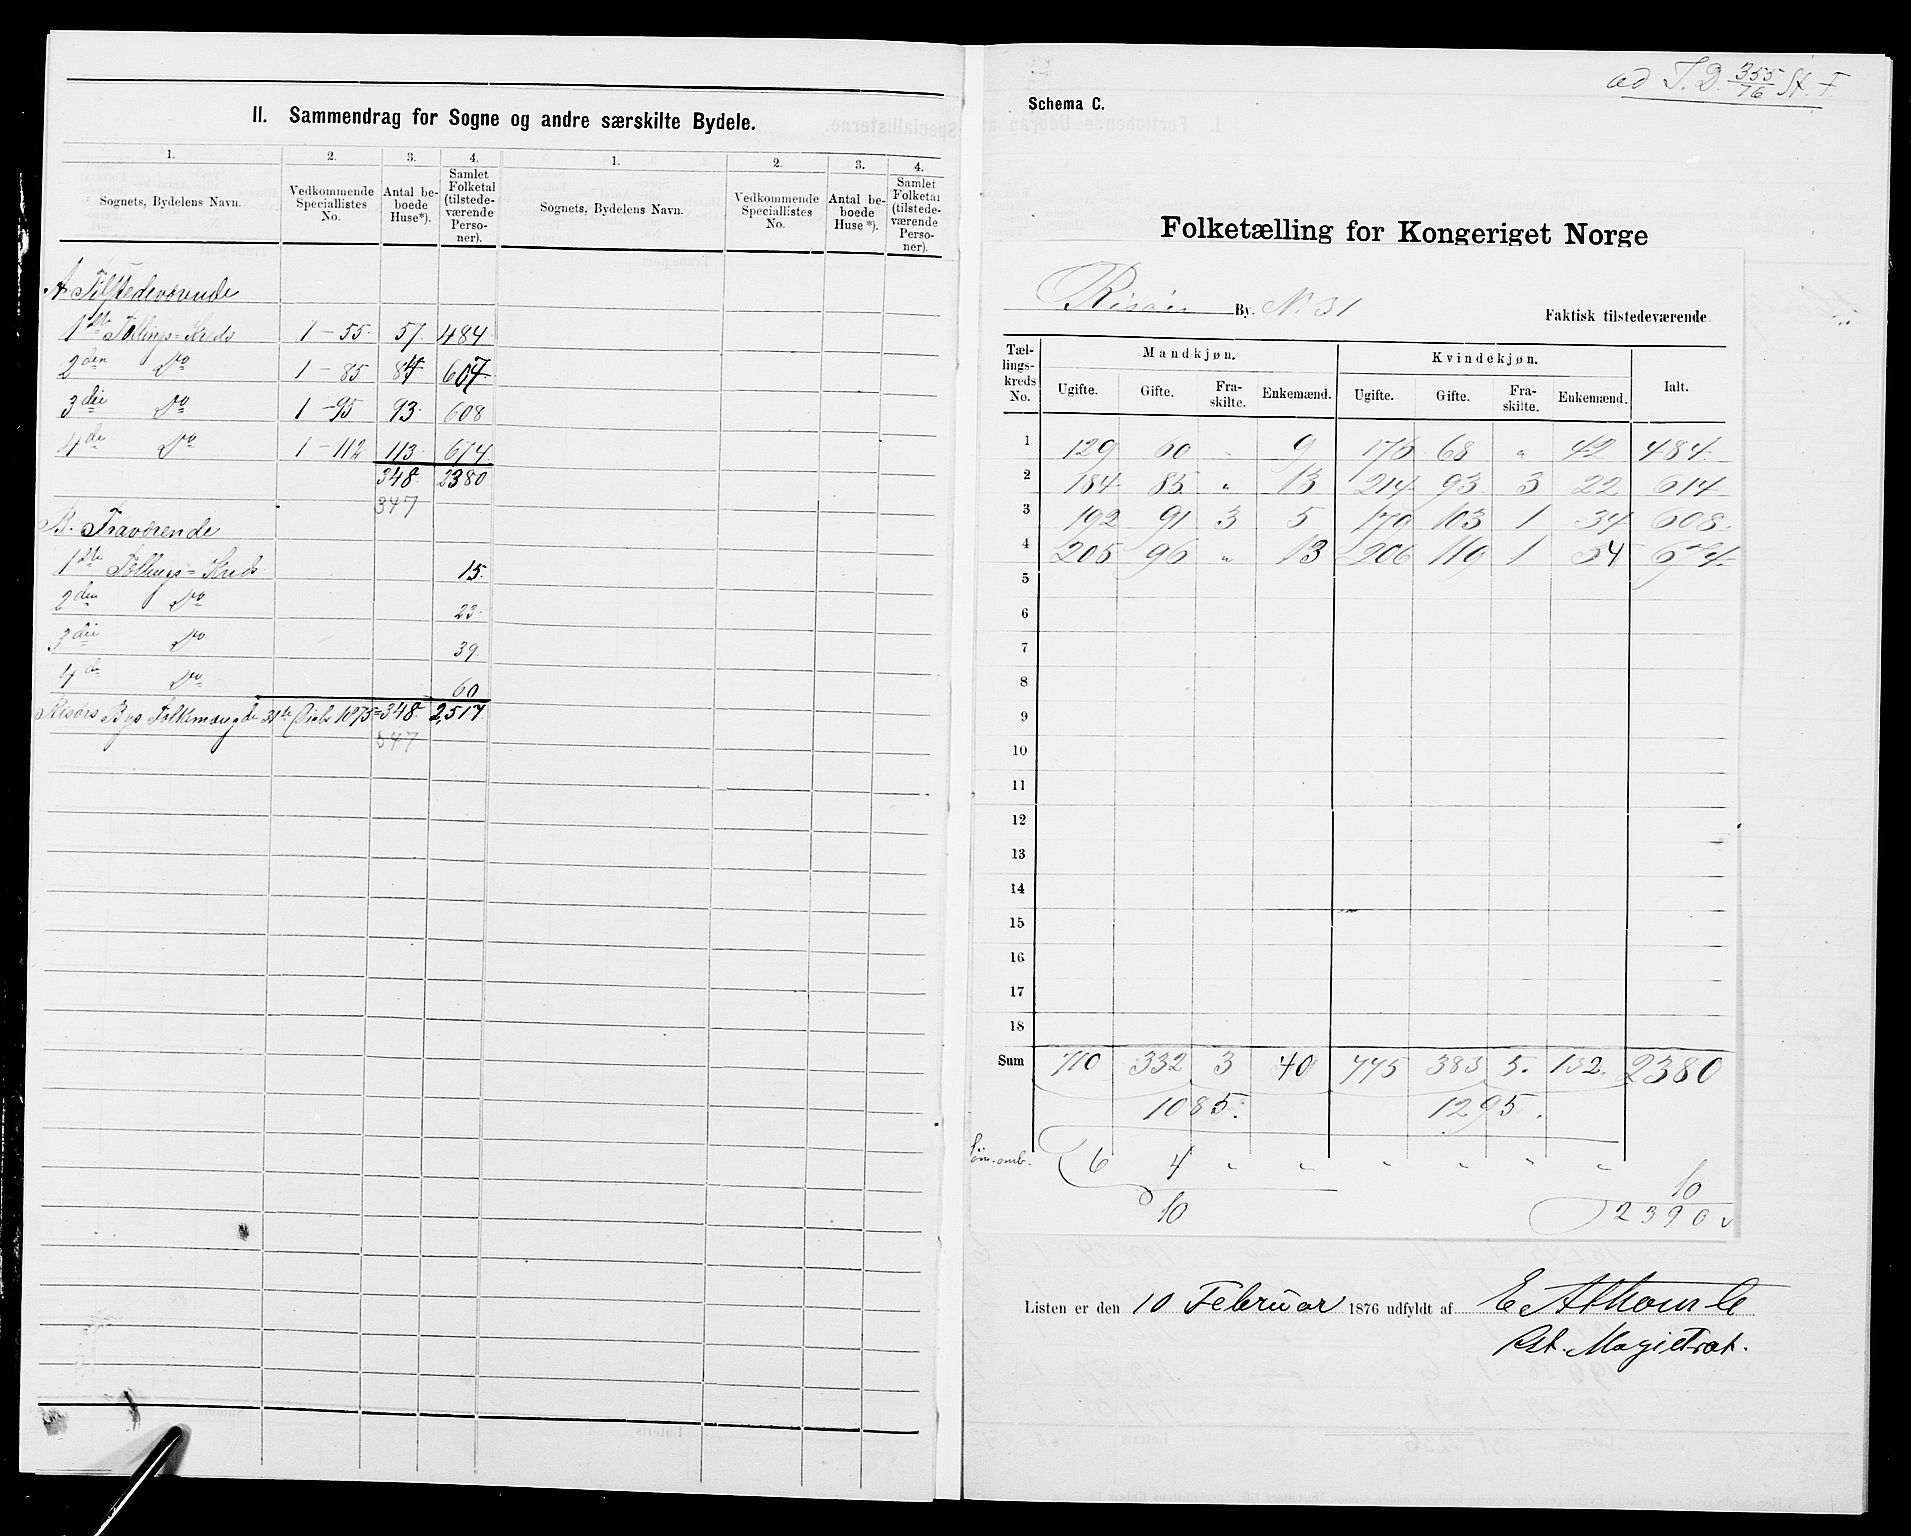 II. Sammendrag for Sogne og andre særskilte Bydele.
1. 2. 3. 4. 1. 2. 3. 4.
Sognets, Bydelens Navn. Vedkommende Speciallistes No. Antal beboede Huse*). Samlet Folketal (tilstedeværende Personer). Sognets, Bydelens Navn. Vedkommende Speciallistes No. Antal beboede Huse*). Samlet Folketal (tilstedeværende Personer).
A. Tilstedeværende
1ste Tællings=Kreds 1 - 55. 57. 484.
2den Do 1 - 85 84 607
3die Do 1 - 95 93. 608
4de Do 1 - 112 113. 674
348. 2380
347
B. Fraværende
1ste Tællings=Kreds. 15.
2den Do 23.
3die Do 39.
4de Do 60
Risørs Bys Folkemængde 31te Decbr 1875 = 348. 2,517.
347
ad T. D. 355/76 St. F.
Schema C.
Folketælling for Kongeriget Norge
Risør By. No. 31 Faktisk tilstedeværende.
Tællingskreds No. Mandkjøn. Kvindekjøn. Ialt.
Ugifte. Gifte. Fraskilte. Enkemænd. Ugifte. Gifte. Fraskilte. Enkemænd.
1 129 60 " 9 176 68 " 42 484.
2 184 85 " 13 214 93 3 22 614
3 192 91 3 5 179 103 1 34 608.
4 205 96 " 13 206 119 1 34 674.
5
6
7
8
9
10
11
12
13
14
15
16
17
18
Sum 710 332 3 40 775 383 5. 132. 2380
1085. 1295.
6 4 " " " " " " 10
10 2390 v
Listen er den 10 Februar 1876 udfyldt af
cst. Magistrat.